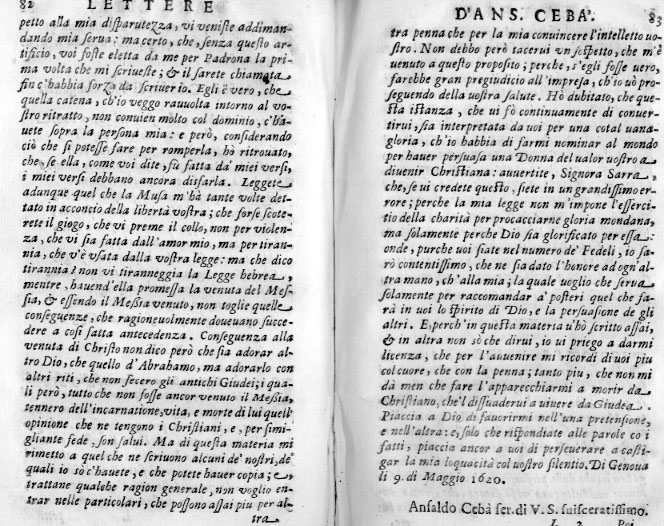 82 LETTERE
petto alla mia disparutezza, vi veniste addiman-
dando mia serua: ma certo, che, senza questo ar-
tificio, voi foste eletta da me per Padrona la pri
ma volta che mi scriueste; & il sarete chiamata
fin c'habbia forza da scriuerlo. Egli è vero, che
quella catena, ch'io veggo rauuolta intorno al vo-
stro ritratto, non conuien molto col dominio, c'ha-
uete sopra la persona mia: e però, considerando
ciò che si potesse fare per romperla, hò ritrouato,
che, se ella, come voi dite, fù fatta da' miei versi,
i miei versi debbano ancora disfarla. Leggete
adunque quel che la Musa m'hà tante volte det-
tato in acconcio della libertà vostra; che forse scote-
rete il giogo, che vi preme il collo, non per violen-
za, che vi sia fatta dall'amor mio, ma per tiran-
nia, che v'è vsata dalla vostra legge: ma che dico
tirannia? non vi tiranneggia la Legge hebrea,
mentre, hauend'ella promessa la venuta del Mes-
sia, & essendo il Meßia venuto, non toglie quelle
conseguenze, che ragioneuolmente doueuano succe-
dere a così fatta antecedenza. Conseguenza alla
venuta di Christo non dico però che sia adorar al-
tro Dio, che quello d'Abrahamo, ma adorarlo con
altri riti, che non fecero gli antichi Giudei; i qua
li però, tutto che non fosse ancor venuto il Meßia,
tennero dell'incarnatione, vita, e morte di lui quell'
opinione che ne tengono i Christiani, e, per simi-
gliante fede, son salui. Ma di questa materia mi
rimetto a quel che ne scriuono alcuni de' nostri, de'
quali io sò c'hauete, e che potete hauer copia; e,
trattane qualche ragion generale, non voglio en-
trar nelle particolari, che possono assai piu per al-
tra
D'ANS. CEBA'. 83
tra penna che per la mia conuincere l'intelletto uo-
stro. Non debbo però tacerui vn sospetto, che m'è
venuto a questo proposito; perche, s'egli fosse vero,
farebbe gran pregiudicio all'impresa, ch'io uò pro-
seguendo della uostra salute. Hò dubitato, che que-
sta istanza, che ui fò continuamente di conuer-
tirui, sia interpretata da uoi per una cotal uana-
gloria, ch'io habbia di farmi nominar al mondo
per hauer persuasa una Donna del ualor uostro a
diuenir Christiana: auuertite, Signora Sarra,
che, se ui credete questo, siete in un grandißimo er-
rore; perche la mia legge non m'impone l'esserci-
tio della charità per procacciarne gloria mondana,
ma solamente perche Dio sia glorificato per essa:
onde, purche uoi siate nel numero de' Fedeli, io sa-
rò contentißimo, che ne sia dato l'honore ad ogn'al-
tra mano, ch'alla mia; la quale uoglio che serua
solamente per raccomandar a' posteri quel che fa-
rà in uoi lo spirito di Dio, e la persuasione de gli
altri. E, perch'in questa materia u'hò scritto assai,
& in altra non sò che dirui, io ui priego a darmi
licenza, che per l'auuenire mi ricordi di uoi piu
col cuore, che con la penna; tanto piu, che non mi
dà men che fare l'apparecchiarmi a morir da
Christiano, che'l dissuaderui a uiuere da Giudea.
Piaccia a Dio di fauorirmi nell'una pretensione,
e nell'altra: e, solo che rispondiate alle parole co i
fatti, piaccia ancor a uoi di perseuerare a casti-
gar la mia loquacità col uostro silentio. Di Genoua
li 9. di Maggio 1620.
Ansaldo Cebà ser. di V. S. suisceratissimo.
L 2 Poi